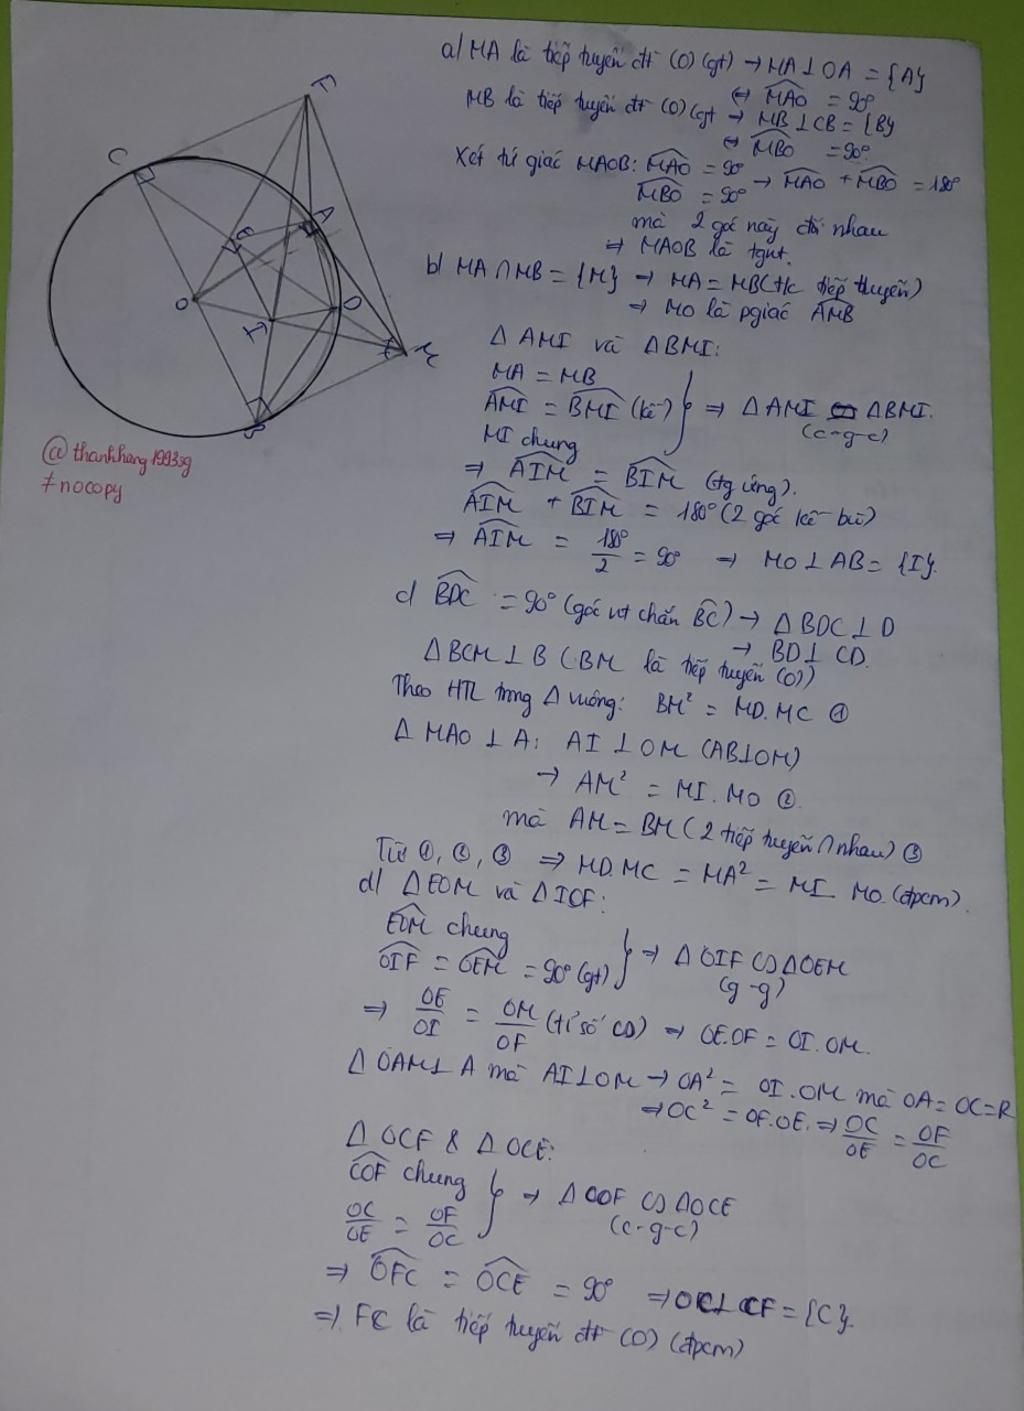 a) MA là tiếp tuyến đt (O) (gt) → MA ⊥ OA = {A}
⇔ MAO = 90°
MB là tiếp tuyến đt (O) (gt → MB ⊥ CB = {B}
⇔ MBO = 90°
Xét tứ giác MAOB: MAO = 90° → MAO + MBO = 180°
MBO = 90°
mà 2 góc này đối nhau
⇒ MAOB là tgnt.
b) MA ∩ MB = {M} → MA = MB (t/c tiếp tuyến)
→ MO là pgiác AMB
Δ AMI và ΔBMI:
MA = MB
AMI = BMI (kề) } ⇒ Δ AMI = ΔBMI.
MI chung (c-g-c)
⇒ AIM = BIM (tg ứng).
AIM + BIM = 180° (2 góc kề bù)
⇒ AIM = 180°/2 = 90° ⇒ MO ⊥ AB = {I}.
c) BDC = 90° (góc nt chắn BC) → Δ BDC ⊥ D
→ BD ⊥ CD.
Δ BCM ⊥ B (BM là tiếp tuyến (O))
Theo HTL trong Δ vuông: BM² = MD.MC ①
Δ MAO ⊥ A: AI ⊥ OM (AB⊥OM)
→ AM² = MI.MO ②.
mà AM = BM (2 tiếp tuyến ∩ nhau) ③
Từ ①, ②, ③ ⇒ MD.MC = MA² = MI.MO. (đpcm).
d) ΔEOM và ΔIOF:
EOM chung
OIF = OEM = 90° (gt) } ⇒ Δ OIF ∽ ΔOEM
(g-g)
⇒ OE/OI = OM/OF (tỉ số ∽) ⇒ OE.OF = OI.OM.
Δ OAM⊥A mà AI⊥OM → OA² = OI.OM mà OA = OC=R
⇒ OC² = OF.OE. ⇒ OC/OE = OF/OC
Δ OCF & Δ OCE:
COF chung
OC/OE = OF/OC } ⇒ Δ COF ∽ ΔOCE
(c-g-c)
⇒ OFC = OCE = 90° ⇒ OC⊥CF = {C}.
⇒ FC là tiếp tuyến đt (O) (đpcm)
F
C
A
E
O
D
I
M
B
@thanhhang1993sg
#nocopy